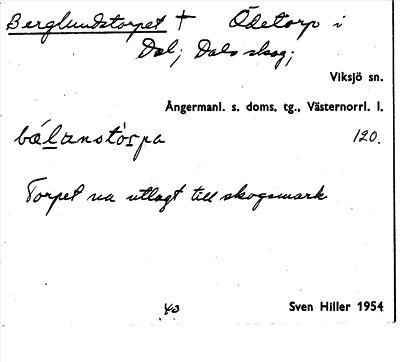 Berglundstorpet † Ödetorp i
Dal; Dals skog;
Viksjö sn.
Ångermanl. s. doms. tg., Västernorrl. l.
120.
Torpet nu utlagt till skogsmark
40
Sven Hiller 1954